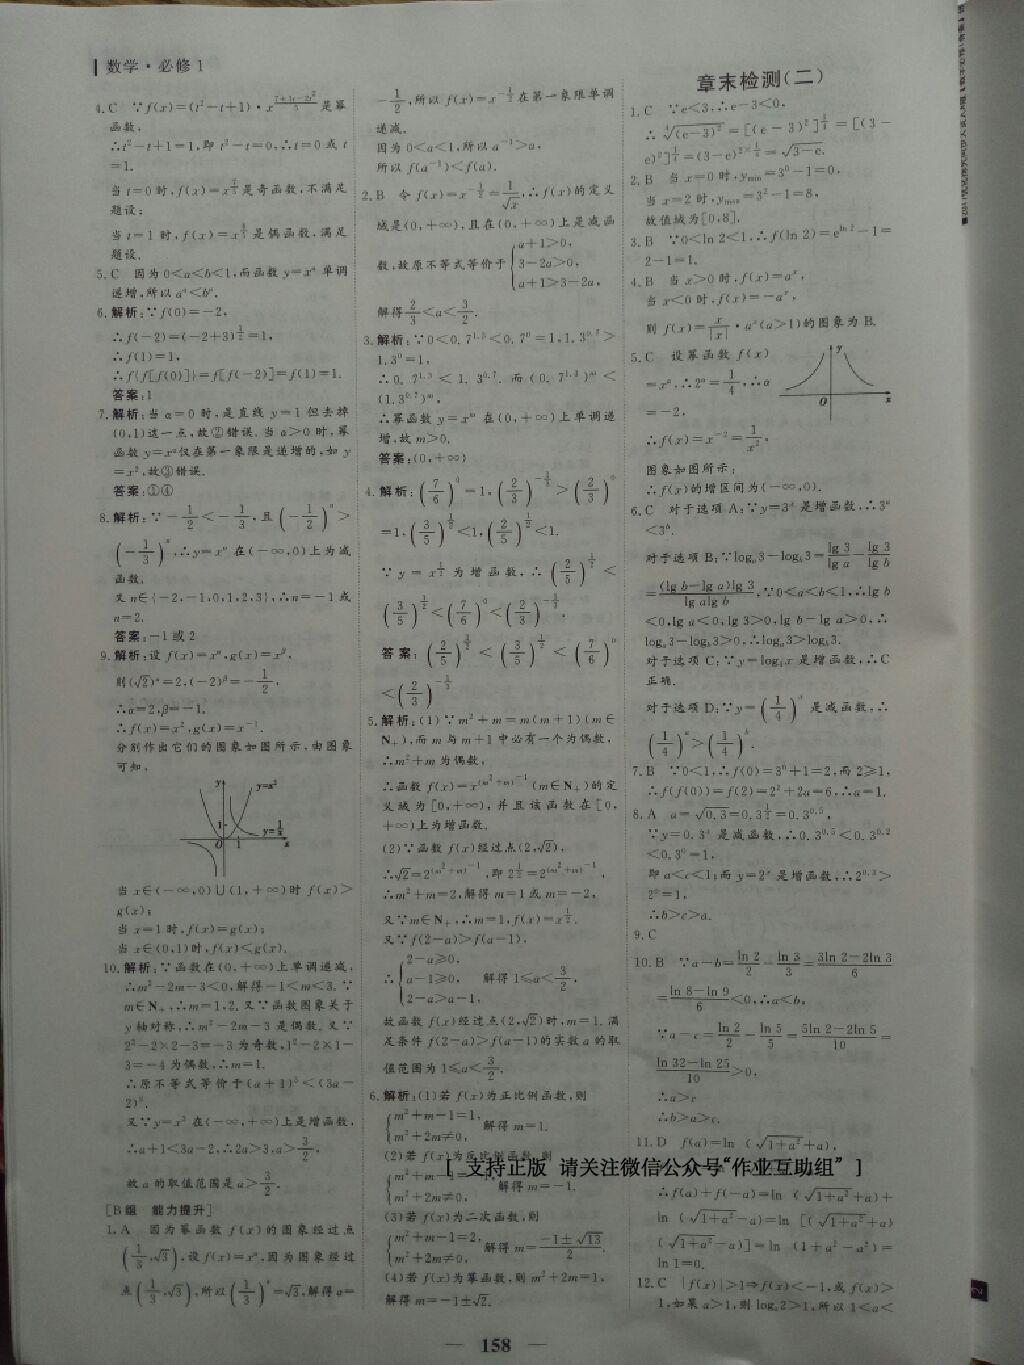 数学·必修1
4.C ∵f(x)=(t²-t+1)·x^((7+3t-2t²)/5)是幂
函数,
∴t²-t+1=1,即t²-t=0,∴t=0或t
=1.
当t=0时,f(x)=x^(7/5)是奇函数,不满足
题设;
当t=1时,f(x)=x^(8/5)是偶函数,满足
题设.
5.C 因为0<a<b<1,而函数y=xᵃ单调
递增,所以aᵃ<bᵃ.
6.解析:∵f(0)=-2,
∴f(-2)=(-2+3)^(1/2)=1,
∴f(1)=1,
∴f{f[f(0)]}=f[f(-2)]=f(1)=1.
答案:1
7.解析:当α=0时,是直线y=1但去掉
(0,1)这一点,故②错误.当α>0时,幂
函数y=x^α仅在第一象限是递增的,如y
=x²,故③错误.
答案:①④
8.解析:∵-1/2<-1/3,且(-1/2)ⁿ>
(-1/3)ⁿ,∴y=xⁿ在(-∞,0)上为减
函数.
又n∈{-2,-1,0,1,2,3},∴n=-1或
n=2.
答案:-1或2
9.解析:设f(x)=x^α,g(x)=x^β,
则(√2)^α=2,(-2)^β=-1/2,
∴α=2,β=-1.
∴f(x)=x²,g(x)=x⁻¹.
分别作出它们的图象如图所示,由图象
可知,
y
y=x²
1
y=1/x
O 1 x
当x∈(-∞,0)∪(1,+∞)时f(x)>
g(x);
当x=1时,f(x)=g(x);
当x∈(0,1)时,f(x)<g(x).
10.解析:∵函数在(0,+∞)上单调递减,
∴m²-2m-3<0,解得-1<m<3.∵
m∈N₊,∴m=1,2.又∵函数图象关于
y轴对称,∴m²-2m-3是偶数.又∵
2²-2×2-3=-3为奇数,1²-2×1-
3=-4为偶数,∴m=1.
∴原不等式等价于(a+1)³<(3a-
2)³.
又∵y=x³在(-∞,+∞)上是增函数,
∴a+1<3a-2,∴2a>3,a>3/2,
故a的取值范围是a>3/2.
[B组 能力提升]
1.A 因为幂函数f(x)的图象经过点
(1/3,√3),设f(x)=x^α,因为图象经过
点(1/3,√3),所以(1/3)^α=√3,解得α=
-1/2,所以f(x)=x^(-1/2)在第一象限单调
递减.
因为0<a<1,所以a⁻¹>a,
所以f(a⁻¹)<f(a).
2.B 令f(x)=x^(-1/2)=1/√x,∴f(x)的定义
域是(0,+∞),且在(0,+∞)上是减函
数,故原不等式等价于{a+1>0,
3-2a>0,
a+1>3-2a,
解得2/3<a<3/2.
3.解析:∵0<0.7^1.3<0.7⁰=1,1.3^0.7>
1.3⁰=1,
∴0.7^1.3<1.3^0.7.而(0.7^1.3)ᵐ<
(1.3^0.7)ᵐ,
∴幂函数y=xᵐ在(0,+∞)上单调递
增,故m>0.
答案:(0,+∞)
4.解析:(7/6)⁰=1,(2/3)^(-1/3)>(2/3)⁰
=1,(3/5)^(1/2)<1,(2/5)^(1/2)<1.
∵y=x^(1/2)为增函数,∴(2/5)^(1/2)<
(3/5)^(1/2)<(7/6)⁰<(2/3)^(-1/3).
答案:(2/5)^(1/2)<(3/5)^(1/2)<(7/6)⁰
<(2/3)^(-1/3)
5.解析:(1)∵m²+m=m(m+1)(m∈
N₊),而m与m+1中必有一个为偶数,
∴m²+m为偶数,
∴函数f(x)=x^((m²+m)⁻¹)(m∈N₊)的定
义域为[0,+∞),并且该函数在[0,
+∞)上为增函数.
(2)∵函数f(x)经过点(2,√2),
∴√2=2^((m²+m)⁻¹),即2^(1/2)=2^((m²+m)⁻¹),
∴m²+m=2,解得m=1或m=-2,
又∵m∈N₊,∴m=1,f(x)=x^(1/2).
又∵f(2-a)>f(a-1),
∴{2-a≥0,
a-1≥0, 解得1≤a<3/2,
2-a>a-1,
故函数f(x)经过点(2,√2)时,m=1.满
足条件f(2-a)>f(a-1)的实数a的取
值范围为1≤a<3/2.
6.解析:(1)若f(x)为正比例函数,则
{m²+m-1=1,
m²+2m≠0, 解得m=1.
(2)若f(x)为反比例函数,则
m²+2m≠0, 解得m=-1.
(3)若f(x)为二次函数,则
{m²+m-1=2,
m²+2m≠0, 解得m=(-1±√13)/2.
(4)若f(x)为幂函数,则m²+2m=1,
解得m=-1±√2.
章末检测(二)
1.C ∵e<3,∴e-3<0,
∴⁴√(e-3)²=[(e-3)²]^(1/4)=[(3-
e)²]^(1/4)=(3-e)^(2×1/4)=√(3-e).
2.B 当x=0时,yₘᵢₙ=3⁰-1=0,
当x=2时,yₘₐₓ=3²-1=8,
故值域为[0,8].
3.B ∵0<ln 2<1,∴f(ln 2)=e^(ln 2)-1=
2-1=1.
4.B 当x>0时,f(x)=aˣ,
当x<0时,f(x)=-aˣ,
则f(x)=x/|x|·aˣ(a>1)的图象为B.
5.C 设幂函数f(x)
=x^α,∴2^α=1/4,∴α
=-2,
y
O x
∴f(x)=x⁻²=1/x²,
图象如图所示;
∴f(x)的增区间为(-∞,0).
6.C 对于选项A:∵y=3ˣ是增函数,∴3ᵃ
<3ᵇ.
对于选项B:∵logₐ3-log_b3=lg 3/lg a-lg 3/lg b
=(lg b-lg a)lg 3/(lg alg b),∵0<a<b<1,∴lg b
<0,lg a<0,lg 3>0,lg b-lg a>0,∴
logₐ3-log_b3>0,∴logₐ3>log_b3.
对于选项C:∵y=log₄x是增函数,∴C
正确.
对于选项D:∵y=(1/4)ˣ是减函数,∴
(1/4)ᵃ>(1/4)ᵇ.
7.B ∵0<1,∴f(0)=3⁰+1=2,而2≥1,
∴f(f(0))=f(2)=2²+2a=6,∴a=1.
8.A a=√0.3=0.3^(1/2)=0.3^0.5,
∵y=0.3ˣ是减函数,∴0.3^0.5<0.3^0.2
<0.3⁰=1,
即a<c<1;而y=2ˣ是增函数,∴2^0.3>
2⁰=1,
∴b>c>a.
9.C
10.B ∵a-b=ln 2/2-ln 3/3=(3ln 2-2ln 3)/6
=(ln 8-ln 9)/6<0,∴a<b,
∵a-c=ln 2/2-ln 5/5=(5ln 2-2ln 5)/10=
(ln 32-ln 25)/10>0,
∴a>c
∴b>a>c.
11.D f(a)=ln(√(1+a²)+a),
[ 支持正版 请关注微信公众号“作业互助组” ]
∴f(a)+f(-a)=ln(√(1+a²)+a)+
ln(√(1+a²)-a)=ln[(√(1+a²)+a)
(√(1+a²)-a)]=ln(1+a²-a²)=
ln 1=0.
12.C |f(x)|>1⇒f(x)<-1,或f(x)>
1,如果a>1,则logₐ2>1,所以1<a<
— 158 —